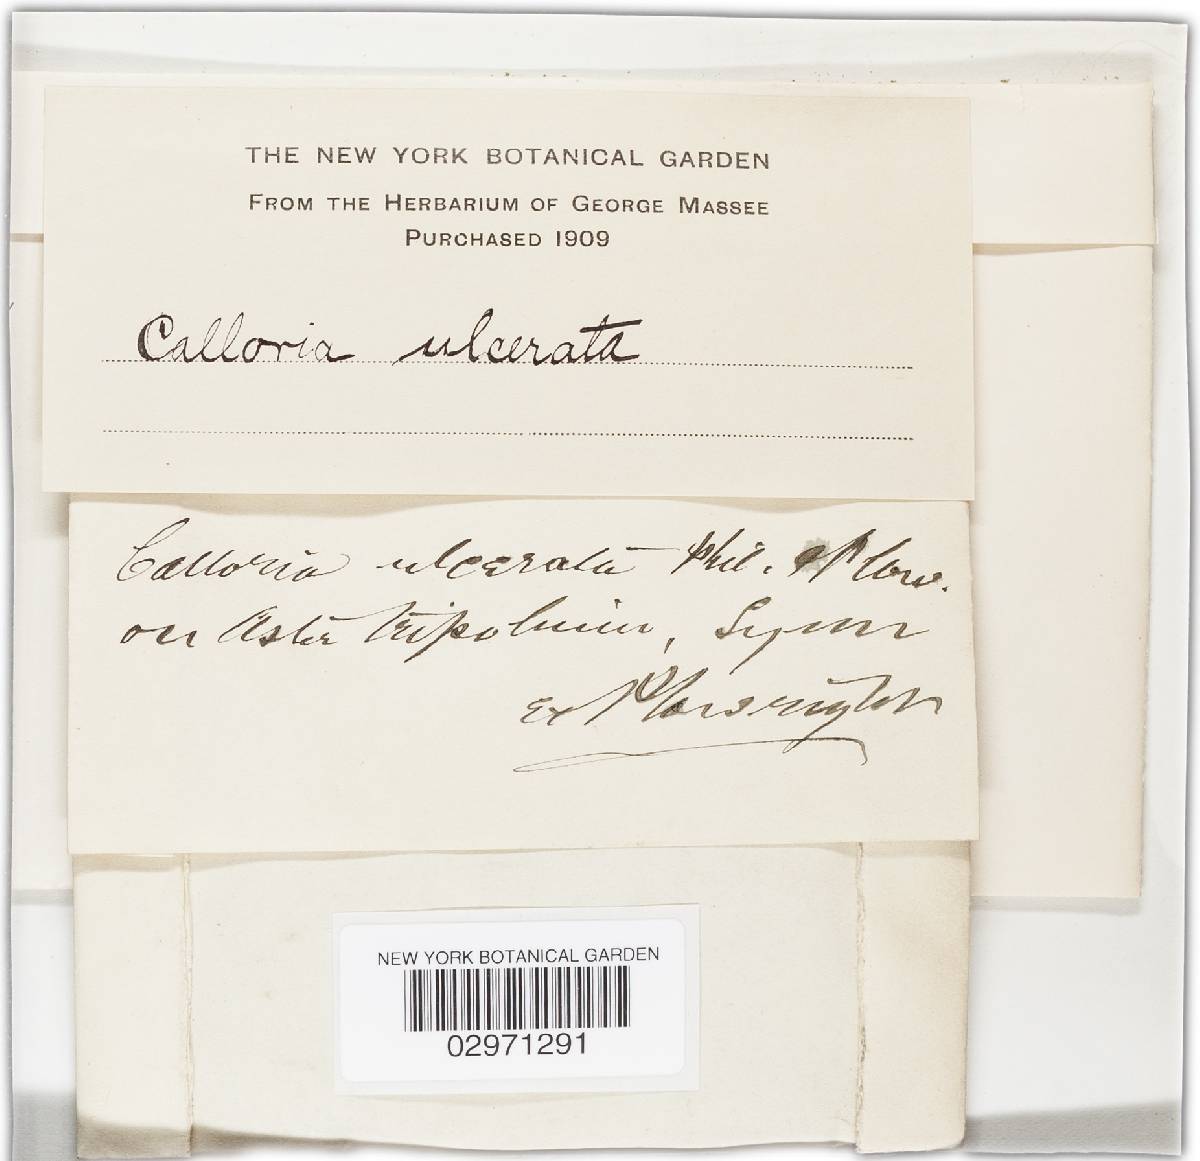 THE NEW YORK BOTANICAL GARDEN
FROM THE HERBARIUM OF GEORGE MASSEE
PURCHASED 1909
Calloria ulcerata
Calloria ulcerata Phil. & Plow.
on Aster tripolium, Lynn
ex Plowright
NEW YORK BOTANICAL GARDEN
02971291